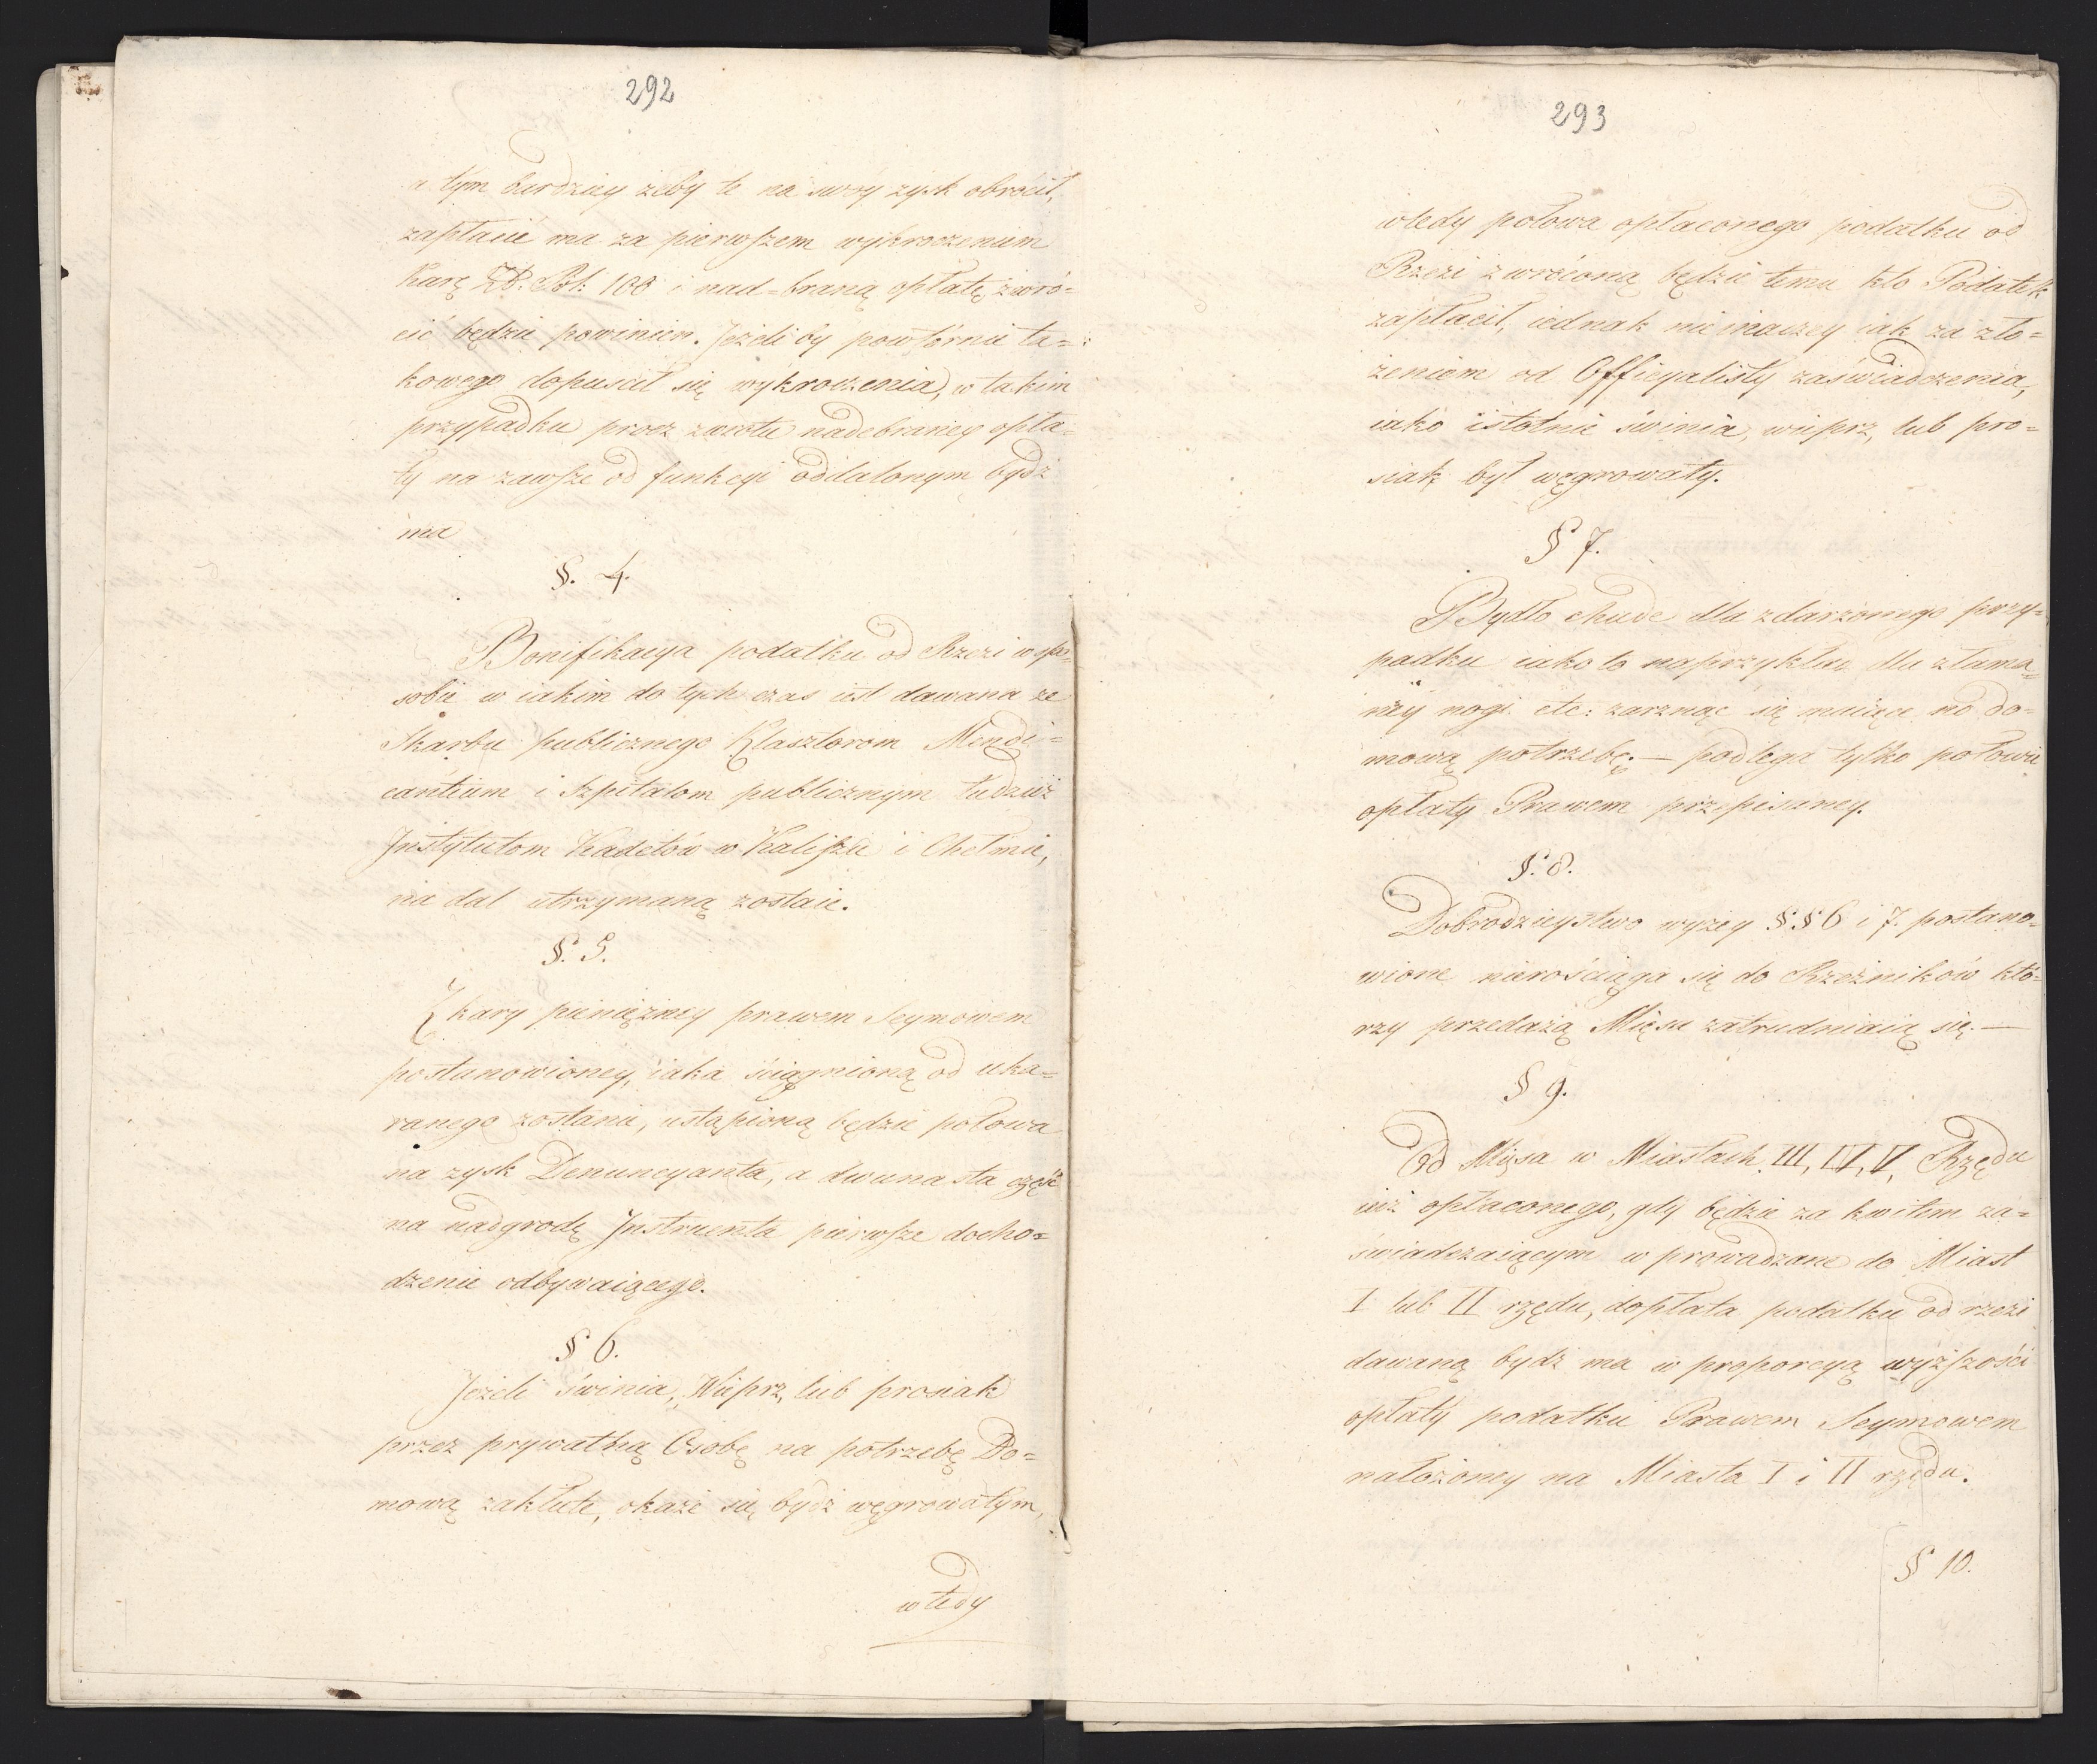 292
a tym bardziey żeby te na swóy zysk obrócił,
zapłacić ma za pierwszem wykroczeniem
Karę Zł. Pol. 100 i nad=braną opłatę zwró=
cić będzie powinien. Jeżeliby powtórnie ta=
kowego dopuścił się wykroczenia, w takim
przypadku procz zwrotu nadebraney opła=
ty na zawsze od funkcyi oddalonym bydź
ma
§. 4.
Bonifikacya podatku od Rzezi w spo=
sobie w iakim do tych czas iest dawana ze
Skarbu publicznego Klasztorom Mendi=
cantium i Szpitalom publicznym tudzież
Instytutom Kadetów w Kaliszu i Chełmie,
na dal utrzymaną zostaie.
§. 5.
Z kary pieniężney prawem Seymowem
postanowioney, iaka ściągnioną od uka=
ranego zostanie, ustąpioną będzie połowa
na zysk Denuncyanta, a dwunasta część
na nadgrodę Instruenta pierwsze docho=
dzenie odbywaiącego.
§ 6.
Jeżeli świnia, Wieprz, lub prosiak
przez prywatną Osobę na potrzebę Do=
mową zakłute, okaże się bydź węgrowatym,
wtedy
293
wtedy połowa opłaconego podatku od
Rzezi zwróconą będzie temu kto Podatek
zapłacił, iednak nie inaczey iak za zło=
żeniem od Officyalisty zaświadczenia,
iako istotnie świnia, wieprz, lub pro=
siak był węgrowaty.
§ 7.
Bydło chude dla zdarzonego przy=
padku iako to naprzykład dla złama=
ney nogi etc: zarznąć się maiące na do=
mową potrzebę. — podlega tylko połowie
opłaty Prawem przepisaney.
§. 8.
Dobrodzieystwo wyżey §§ 6 i 7. postano=
wione nierościąga się do Rzeźników któ=
rzy przedażą Mięsa zatrudniaią się. —
§ 9.
Od Mięsa w Miastach III, IV, V, Rzędu
iuż opłaconego, gdy będzie za kwitem za=
świadczaiącym w prowadzane do Miast
I lub II rzędu, dopłata podatku od rzezi
dawaną bydź ma w proporcyą wyższości
opłaty podatku Prawem Seymowem
nałożoney na Miasta I i II rzędu.
§ 10.